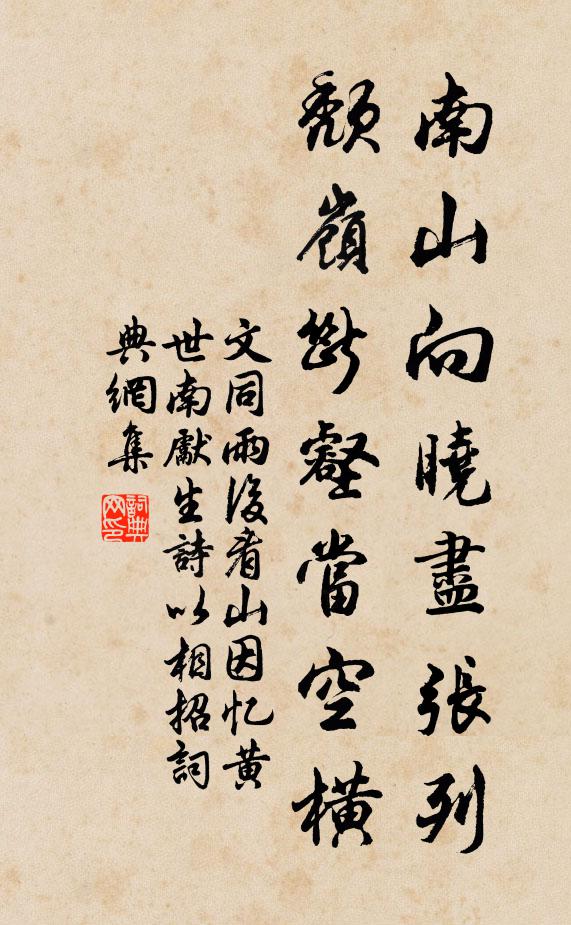 南山向曉盡張列
頹嶺斷壑當空橫
文同雨後看山因忆黃
世南獻生詩以相招詞
典網集
詞典網印